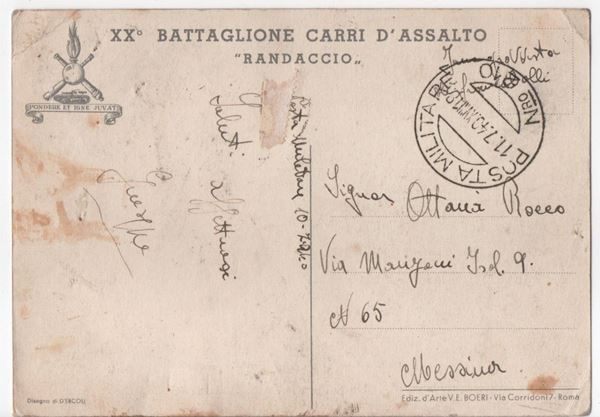 XX° BATTAGLIONE CARRI D'ASSALTO
"RANDACCIO"
PONDERE ET IGNE JUVAT
POSTA MILITARE
Nro 10
11.7.40.XVIII
Posta Militare 10-7-940
Saluti
Affettuosi
Signor
Ottanà Rocco
Via Manzoni Isol. 9.
N 65
Messina
Disegno di D'ERCOLI
Ediz. d'Arte V. E. BOERI - Via Corridoni 7 - Roma